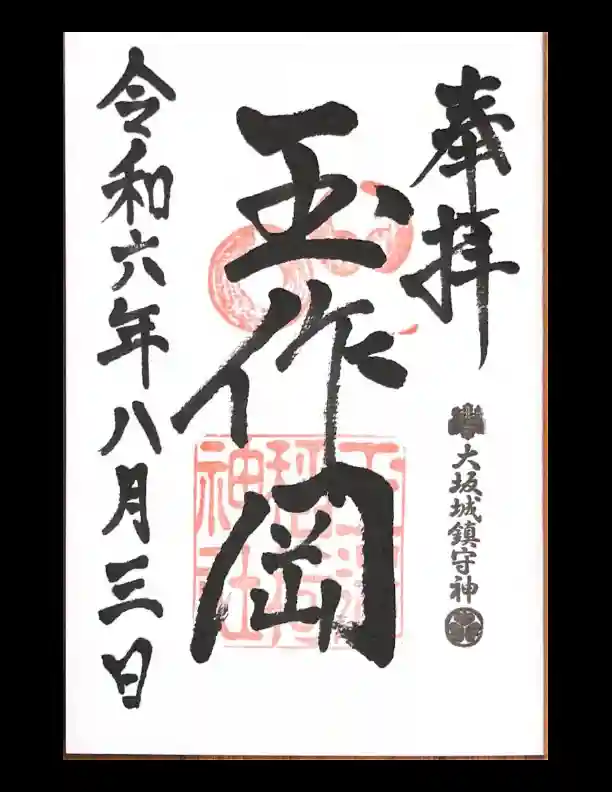 奉拝
大坂城鎮守神
玉作岡
玉造稲荷神社
令和六年八月三日